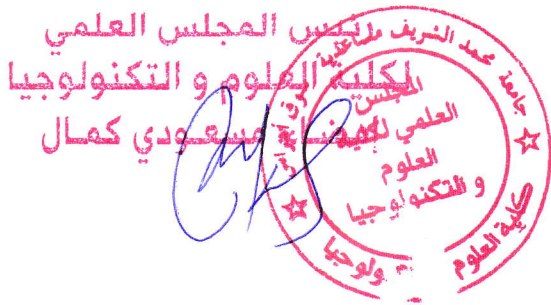 رئيس المجلس العلمي
لكلية العلوم و التكنولوجيا
مسعودي كمال
جامعة محمد الشريف مساعدية سوق أهراس
المجلس
العلمي لكلية
العلوم
و التكنولوجيا
كلية العلوم
ولوجيا